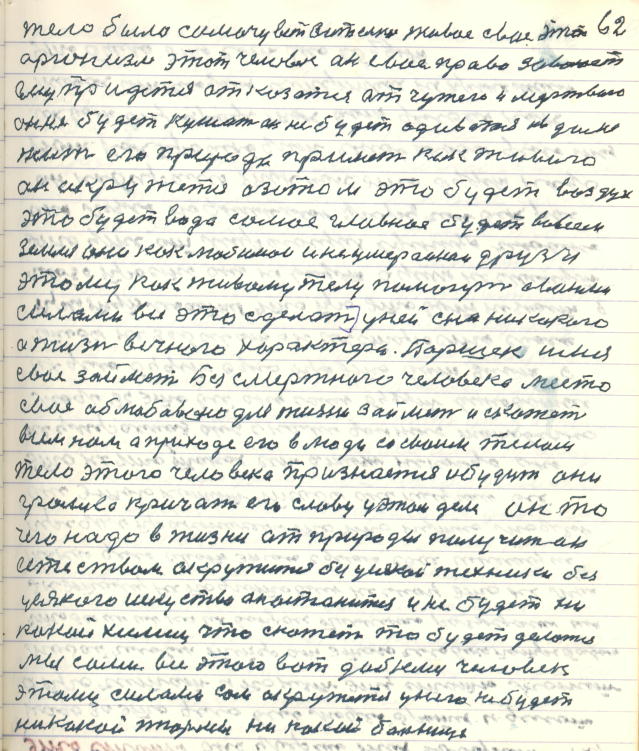 62
тело было самочувствительно живое свое это
организм этот человек он свое право завоюет
ему придется отказатся от чужего и мертвого
он не будет кушат он не будет одеватся и в доме
жит его природа примет как живого
он окружится азотом это будет воздух
это будет вода самое главное будет во всем
земля они как любимои и неумераемаи друзя
этому как живому телу помогут своими
силами все это сделат у ней сна никакого
а жизн вечного характера. Паршек имя
свое займет Бессмертного человека место
свое облюбовано для жизни займет и скажет
всем нам о приходе его в люди со своим телом
тело этого человека признается и будут они
громко кричат его славу у этом деле он то
чего надо в жизни от природы получит он
естеством окружится без усякой техники без
усякого искуства останится и не будет ни
какой химии что скажет то будет делатся
мы сами все этого вот добюмся человек
этими силами сам окружится у него не будет
никакой тюрмы ни какой больници